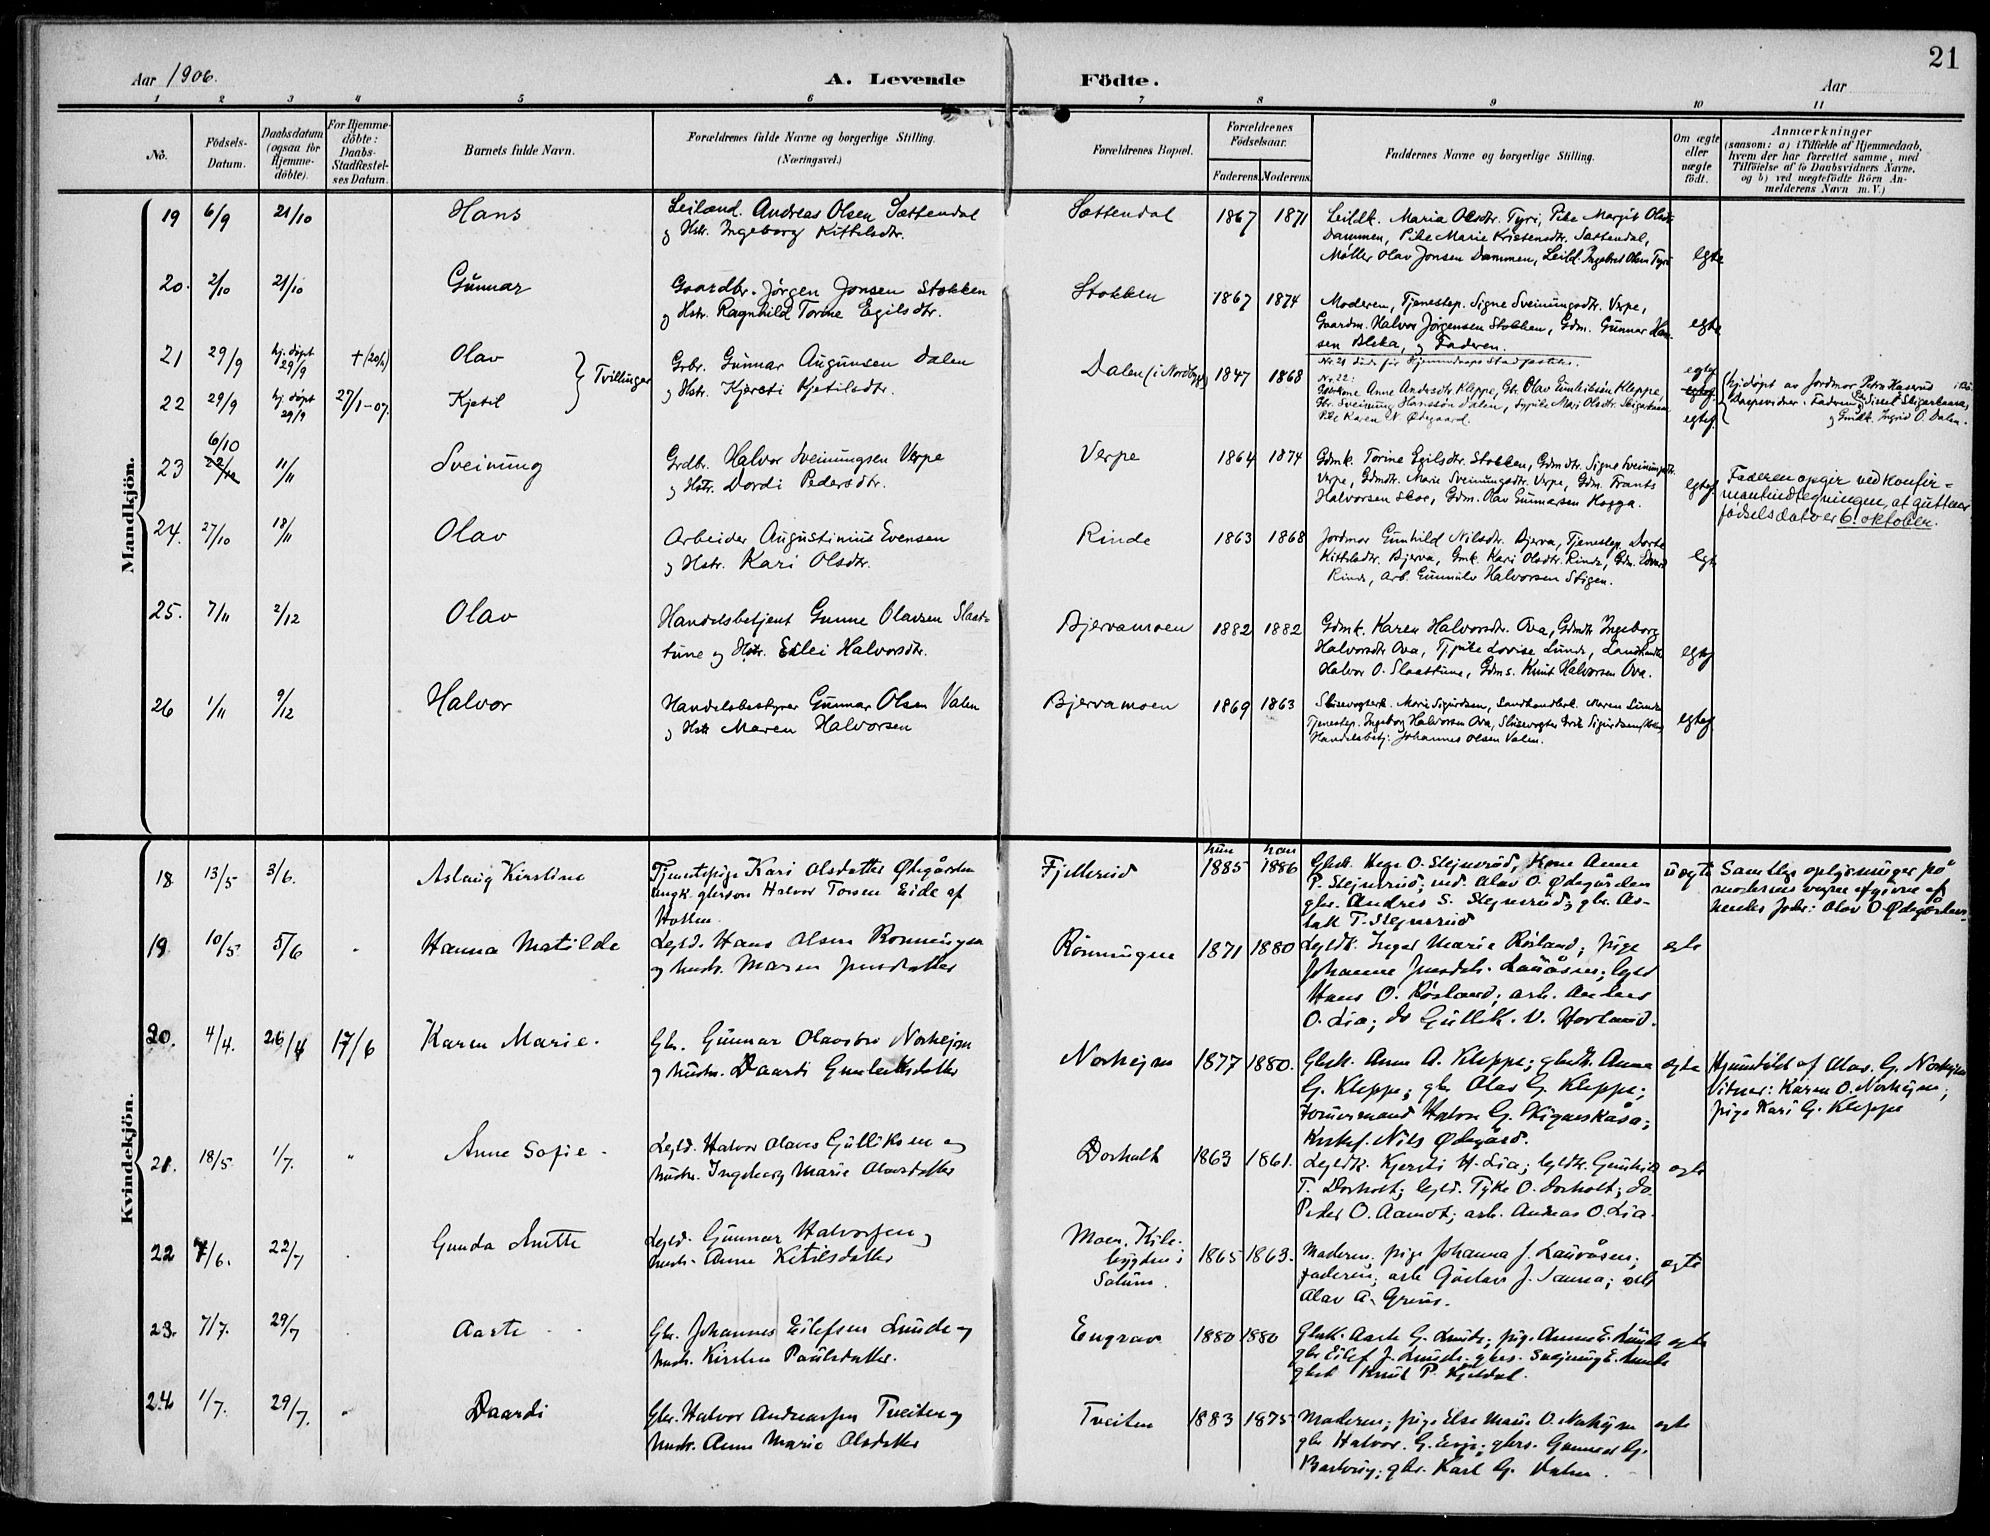 21
Aar 1906.
A. Levende Födte.
Aar
1 2 3 4 5 6 7 8 9 10 11
No.
Födsels-Datum.
Daabsdatum (ogsaa for Hjemme-döbte).
For Hjemme-döbte: Daabs-Stadfæstel-ses Datum.
Barnets fulde Navn.
Forældrenes fulde Navne og borgerlige Stilling.
(Næringsvei.)
Forældrenes Bopæl.
Forældrenes Födselsaar.
Faderens. Moderens.
Faddernes Navne og borgerlige Stilling.
Om ægte eller uægte födt.
Anmærkninger
(saasom: a) i Tilfælde af Hjemmedaab,
hvem der har forrettet samme, med
Tilföielse af to Daabsvidners Navne,
og b) ved uægtefödte Börn An-
melderens Navn m. V.)
Mandkjön.
19 6/9 21/10 Hans
Leilænd. Andreas Olsen Sættendal
og Hstr. Ingeborg Kittilsdtr.
Sættendal 1867 1871
Leildk. Maria Olsdtr. Tyri, Pike Margit Olsdtr.
Dammen, Pike Marie Kristensdtr. Sættendal,
Møller Olav Jonsen Dammen, Leild. Ingebret Olsen Tyri
egte
20. 2/10 21/10 Gunnar
Gaardbr. Jørgen Jonsen Stokken
og Hstr. Ragnhild Torine Egilsdtr.
Stokken 1867 1874
Moderen, Tjenestep. Signe Sveinungsdtr. Verpe,
Gaardm. Halvor Jørgensen Stokken, Gdm. Gunnar Han-
sen Bleka, og Faderen.
egte
21 29/9 hj. døpt 29/9 + (20/12) Olav
22 29/9 hj. døpt 29/9 27/1-07. Kjetil
Tvillinger
Grbr. Gunnar Augunsen Dalen
og Hstr. Kjersti Kjetilsdtr.
Dalen (i Nordbygd) 1847 1868
Nr. 21 døde før Hjemmedaaps Stadfæstelse.
Nr. 22:
Anne Andersdtr Kleppe, Gbr. Olav Gunleiksen Kleppe,
Gbr. Sveinung Hansson Dalen, Mari Olsdtr.
Pike Karen N. Ødegaard.
egtef.
egtef.
hj.døpt av Jordmor Petra Haserud
Daapsvidner: Faderen, Sissel Stigarkaasa,
og Gmdk. Ingrid O. Dalen.
23 6/10 22/10 11/11 Sveinung
Grdbr. Halvor Sveinungsen Verpe
og Hstr. Dordi Pedersdtr.
Verpe 1864 1874
Gdmk. Torine Egilsdtr. Stokken, Gdmdtr. Signe Sveinungsdtr.
Verpe, Gdmdtr. Marie Sveinungsdtr. Verpe, Gdm. Frants
Halvorsen Skoe, Gdm. Olav Gunnarsen Hogga.
egtef.
Faderen opgir ved konfir-
mantindtegningen, at guttens
fødselsdato er 6. oktober.
24. 27/10 18/11 Olav
Arbeider Augustinius Evensen
og Hstr. Kari Olsdtr.
Rinde 1863 1868
Jordmor Gunhild Nilsdtr. Bjerva, Tjenestep. Dorte
Kittilsdtr. Bjerva, Gmk. Kari Olsdtr. Rinde, Gdm. Edvard
Rinde, Arb. Gunnulv Halvorsen Stigen.
egte
25. 7/11 2/12 Olav
Handelsbetjent Gunne Olavsen Slaat-
tune og Hstr. Eilei Halvorsdtr.
Bjervamoen 1882 1882
Gdmk. Karen Halvorsdtr. Ova, Gdmdtr Ingeborg
Halvorsdtr Ova, Tj.pike Lovise Lunde, Landhandler
Halvor O. Slaattune, Gdms. Knut Halvorsen Ova.
egtef
26 1/11 9/12 Halvor
Handelsbestyrer Gunnar Olsen Valen
og Hstr Maren Halvorsen
Bjervamoen 1869 1863
Slusevogterk. Marie Sigurdsen, Landhandlerk. Maren Lunde
Tjenestep. Ingeborg Halvorsen Ova, Slusevogter Erik Sigurdsen,
Handelsbetj. Johannes Olsen Valen.
egtef
Kvindekjön.
18 13/5 3/6. Aslaug Kirstine
Tjenestepige Kari Olsdatter Ødegården
ungk. gbrsøn Halvor Tovsen Eide af
Holten.
Fjellerud hun 1885 han 1886
Gbrk. Hege O. Stejnsrud, Kone Anne
P. Stejnsrud; ind. Olav O. Ødegården
gbr. Andres S. Stejnsrud; gbr. As-
lak T. Stejnsrud
uægte
Samtlige oplysninger på
moderens vegne afgivne af
hendes fader: Olav O. Ødegården.
19 10/5. 5/6 Hanna Matilde
Lejld. Hans Olsen Rönningen
og hustr. Maren Jensdatter
Rönningen 1871 1880
Lejldk. Inger Marie Røsland; pige
Johanne Jensdtr. Lauåsen; lejld
Hans O. Røsland; arb. Anders
O. Lia; do Gullik V. Horland.
egte
20. 4/4. 26/4 17/6 Karen Marie.
Gbr. Gunnar Olavsen Norhejm
og hustr. Daardi Gunleiksdatter
Norhejm 1877 1880.
Gbrk. Anne A. Kleppe; gbrdtr. Anne
G. Kleppe; gbr Olav G. Kleppe;
Halvor G. Stigarkåsa;
Nils Ødegård.
egte
Hjemdöbt af Olav G. Norhejm
Vitner: Karen O. Norhejm;
pige Kari G. Kleppe
21. 18/5. 1/7. " Anne Sofie.
Lejld. Halvor Olaves Gulliksen og
hustr. Ingeborg Marie Olavsdatter
Dorholt 1863 1861.
Lejldk. Kjersti H. Lia; lejldk. Gunhild
T. Dorholt; lejld. Tyke O. Dorholt; do
Peder O. Aamot; arb. Andreas O. Lia.
egte
22 7/6. 22/7 Gunda Anette
Lejld. Gunnar Halvorsen og
hustr. Anne Kitilsdatter
Moen, Kile-
bygden i
Solum. 1865 1863.
Moderen, pige Johanna J. Lauvåsen;
faderen; arb Gustav J. Sanna; arb
Olav A. Grinis.
egte
23. 7/7. 29/7 Aaste
Gbr. Johannes Eilefsen Lunde og
hustr. Kirsten Paulsdatter.
Engrav 1880 1880
Gbrk. Aaste G. Lunde; pige Anne E. Lunde
gbr Eilef J. Lunde. gbrs. Svejnung E. Lunde
gbrs Knut P. Kjeldal.
egte
24. 1/7. 29/7. Daardi
Gbr. Halvor Andreassen Tveiten og
hustr. Anne Marie Olsdatter
Tveiten 1883 1875
Moderen; pige Else Marie O. Norhejm
gbr Halvor G. Eeje; gbrs. Gunnar G.
gbr. Karl G. Valen.
egte